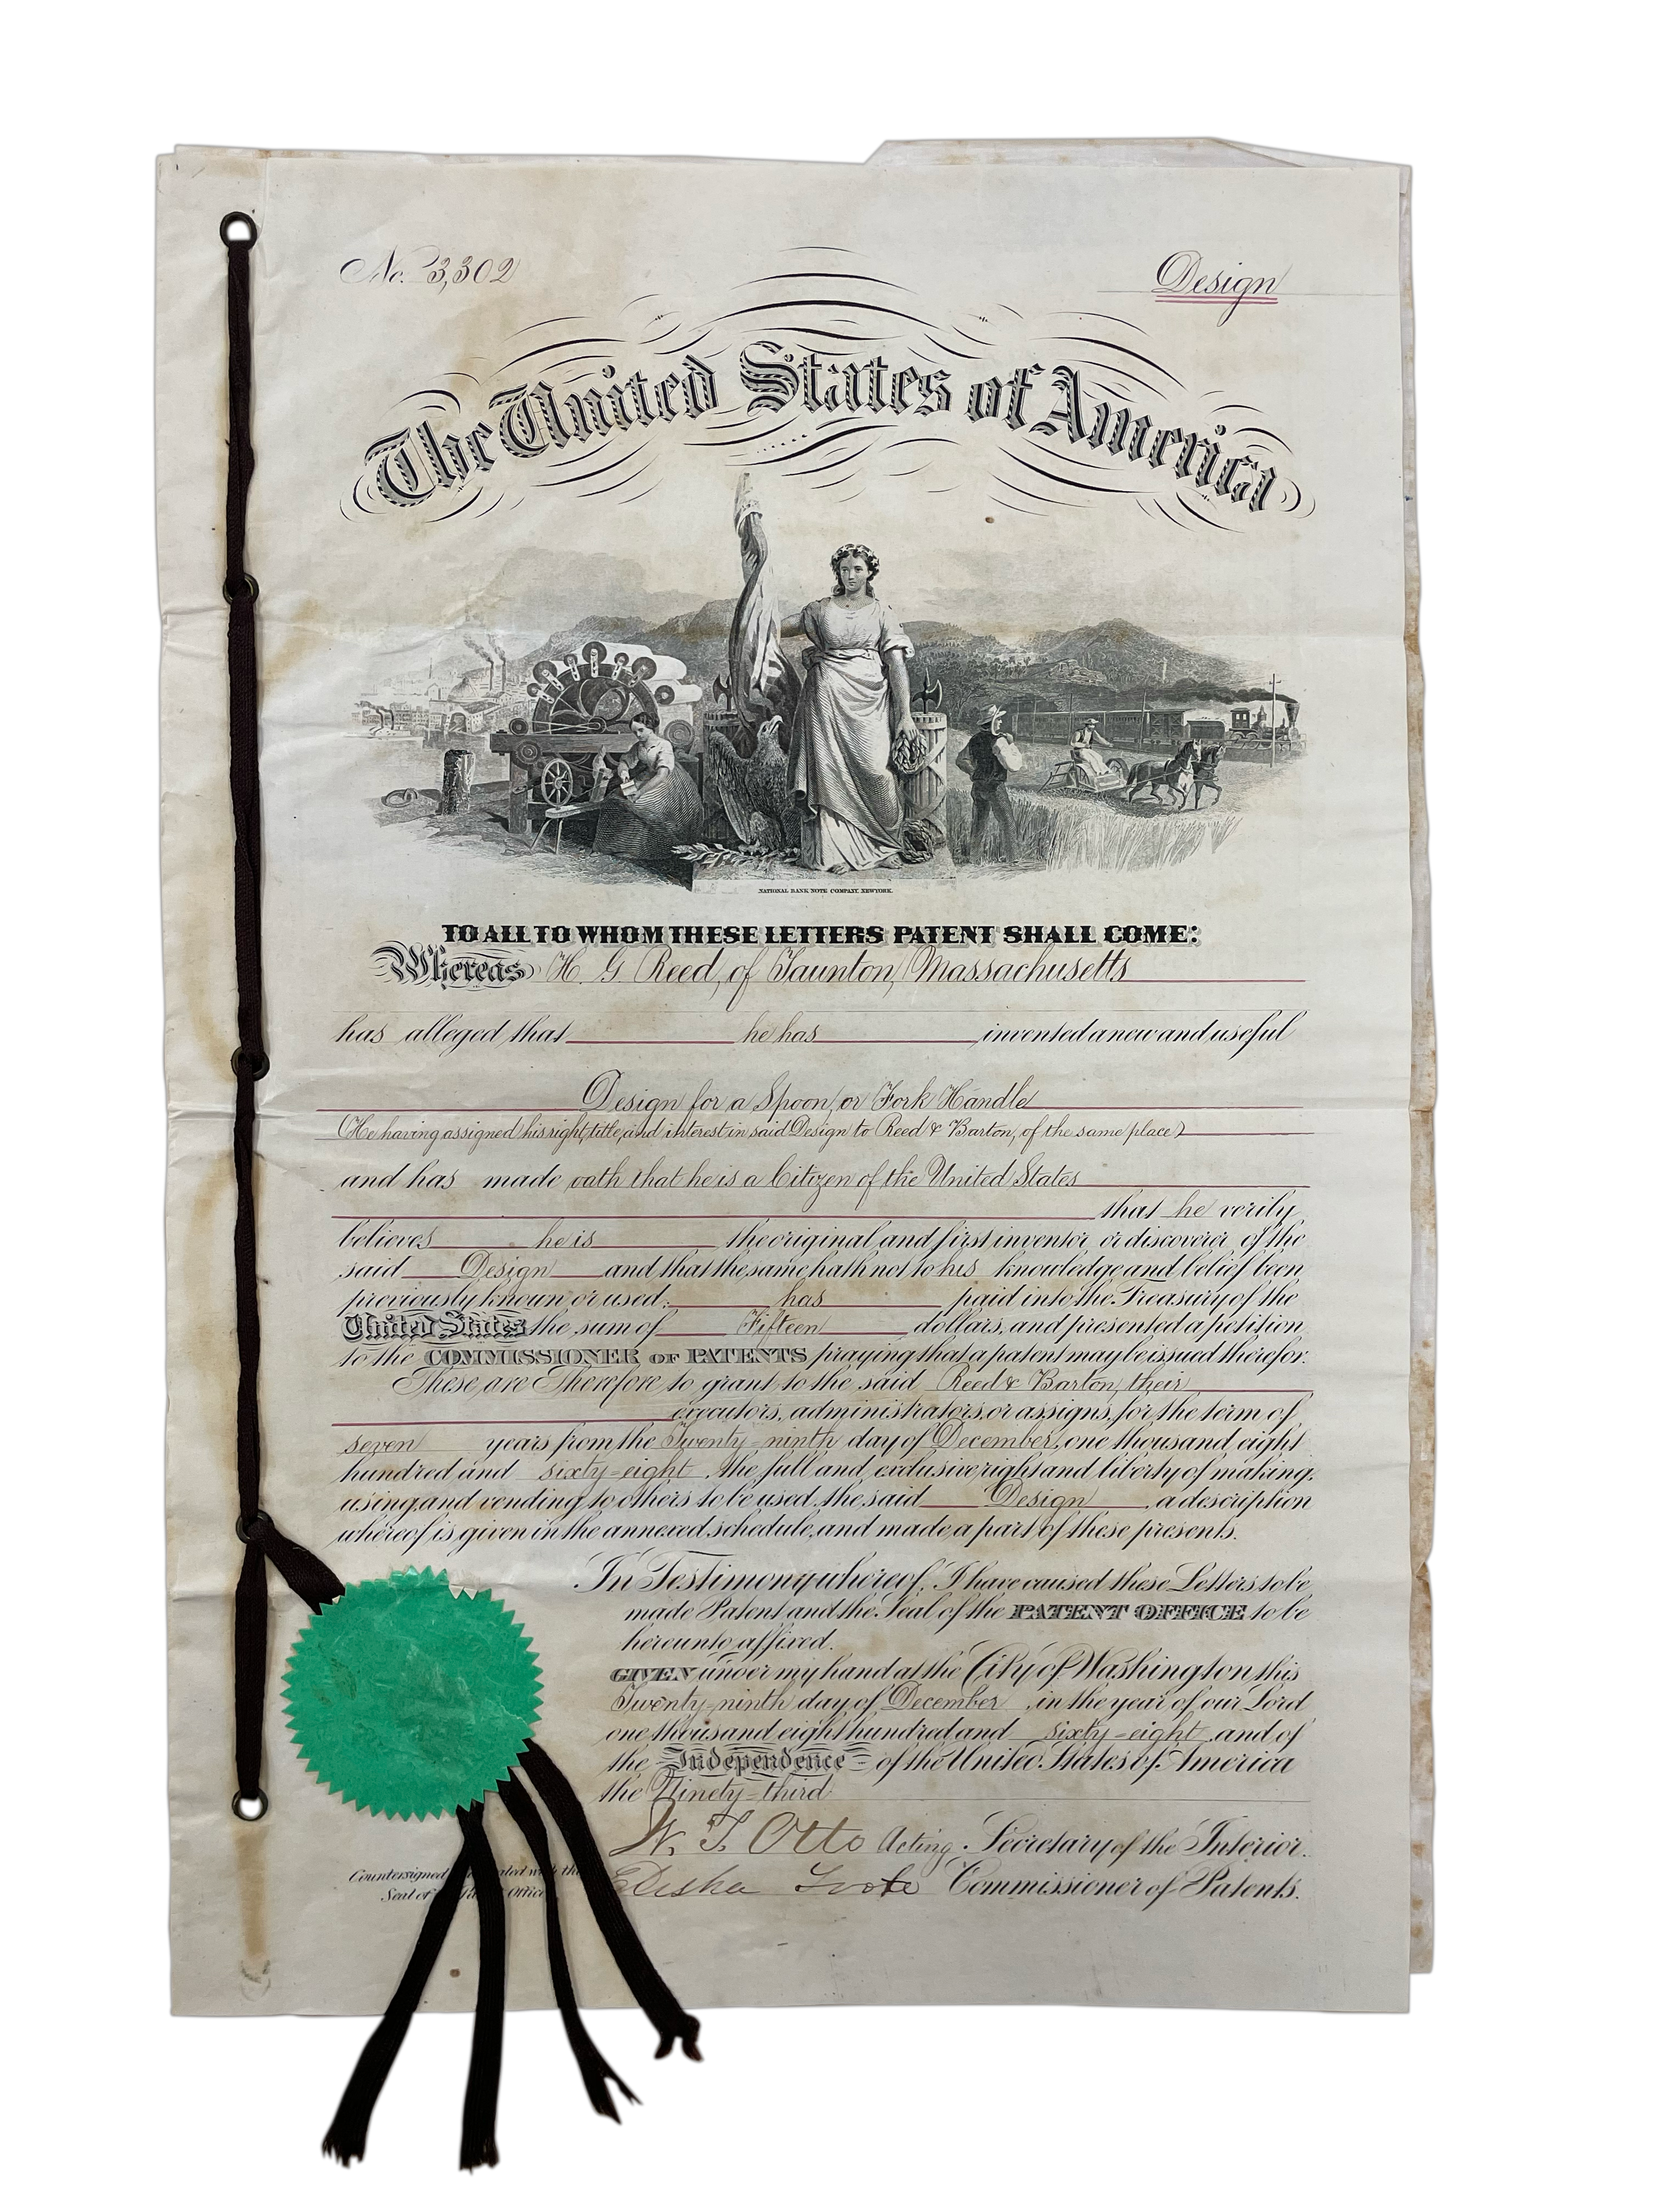 No. 3,302
Design
The United States of America
NATIONAL BANK NOTE COMPANY, NEW YORK.
TO ALL TO WHOM THESE LETTERS PATENT SHALL COME:
Whereas H. G. Reed, of Taunton, Massachusetts
has alleged that he has invented a new and useful
Design for a Spoon, or Fork Handle
(He having assigned his right, title, and interest in said Design to Reed & Barton, of the same place)
and has made oath that he is a Citizen of the United States
that he verily
believes he is the original and first inventor or discoverer of the
said Design and that the same hath not to his knowledge and belief been
previously known or used: has paid into the Treasury of the
United States the sum of Fifteen dollars, and presented a petition
to the COMMISSIONER OF PATENTS praying that a patent may be issued therefor.
These are Therefore to grant to the said Reed & Barton, their
executors, administrators, or assigns, for the term of
seven years from the Twenty-ninth day of December, one thousand eight
hundred and sixty-eight, the full and exclusive right and liberty of making,
using, and vending to others to be used, the said Design, a description
whereof is given in the annexed schedule, and made a part of these presents.
In Testimony whereof, I have caused these Letters to be
made Patent and the Seal of the PATENT OFFICE to be
hereunto affixed.
GIVEN under my hand at the City of Washington this
Twenty-ninth day of December, in the year of our Lord
one thousand eight hundred and sixty-eight, and of
the Independence of the United States of America
the Ninety-third
W. T. Otto Acting Secretary of the Interior.
Countersigned with the
Elisha Foote Commissioner of Patents.
Seal of Office